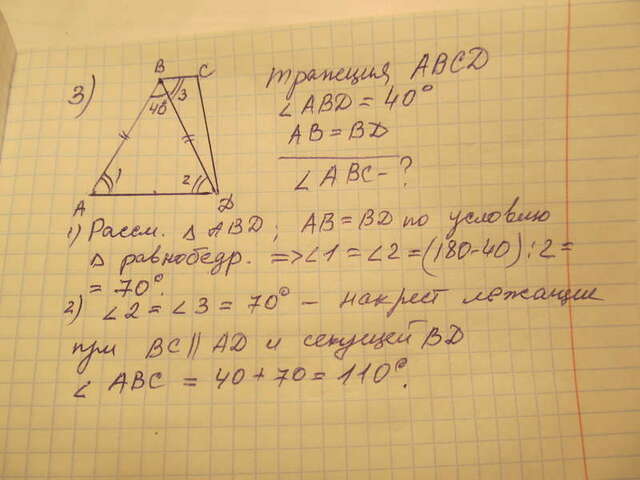 3)
B C
40 3
1 2
A D
трапеция ABCD
∠ABD = 40°
AB = BD
∠ABC - ?
1) Рассм. △ ABD; AB = BD по условию
△ равнобедр. => ∠1 = ∠2 = (180-40):2 =
= 70°.
2) ∠2 = ∠3 = 70° - накрест лежащие
при BC || AD и секущей BD
∠ ABC = 40 + 70 = 110°.